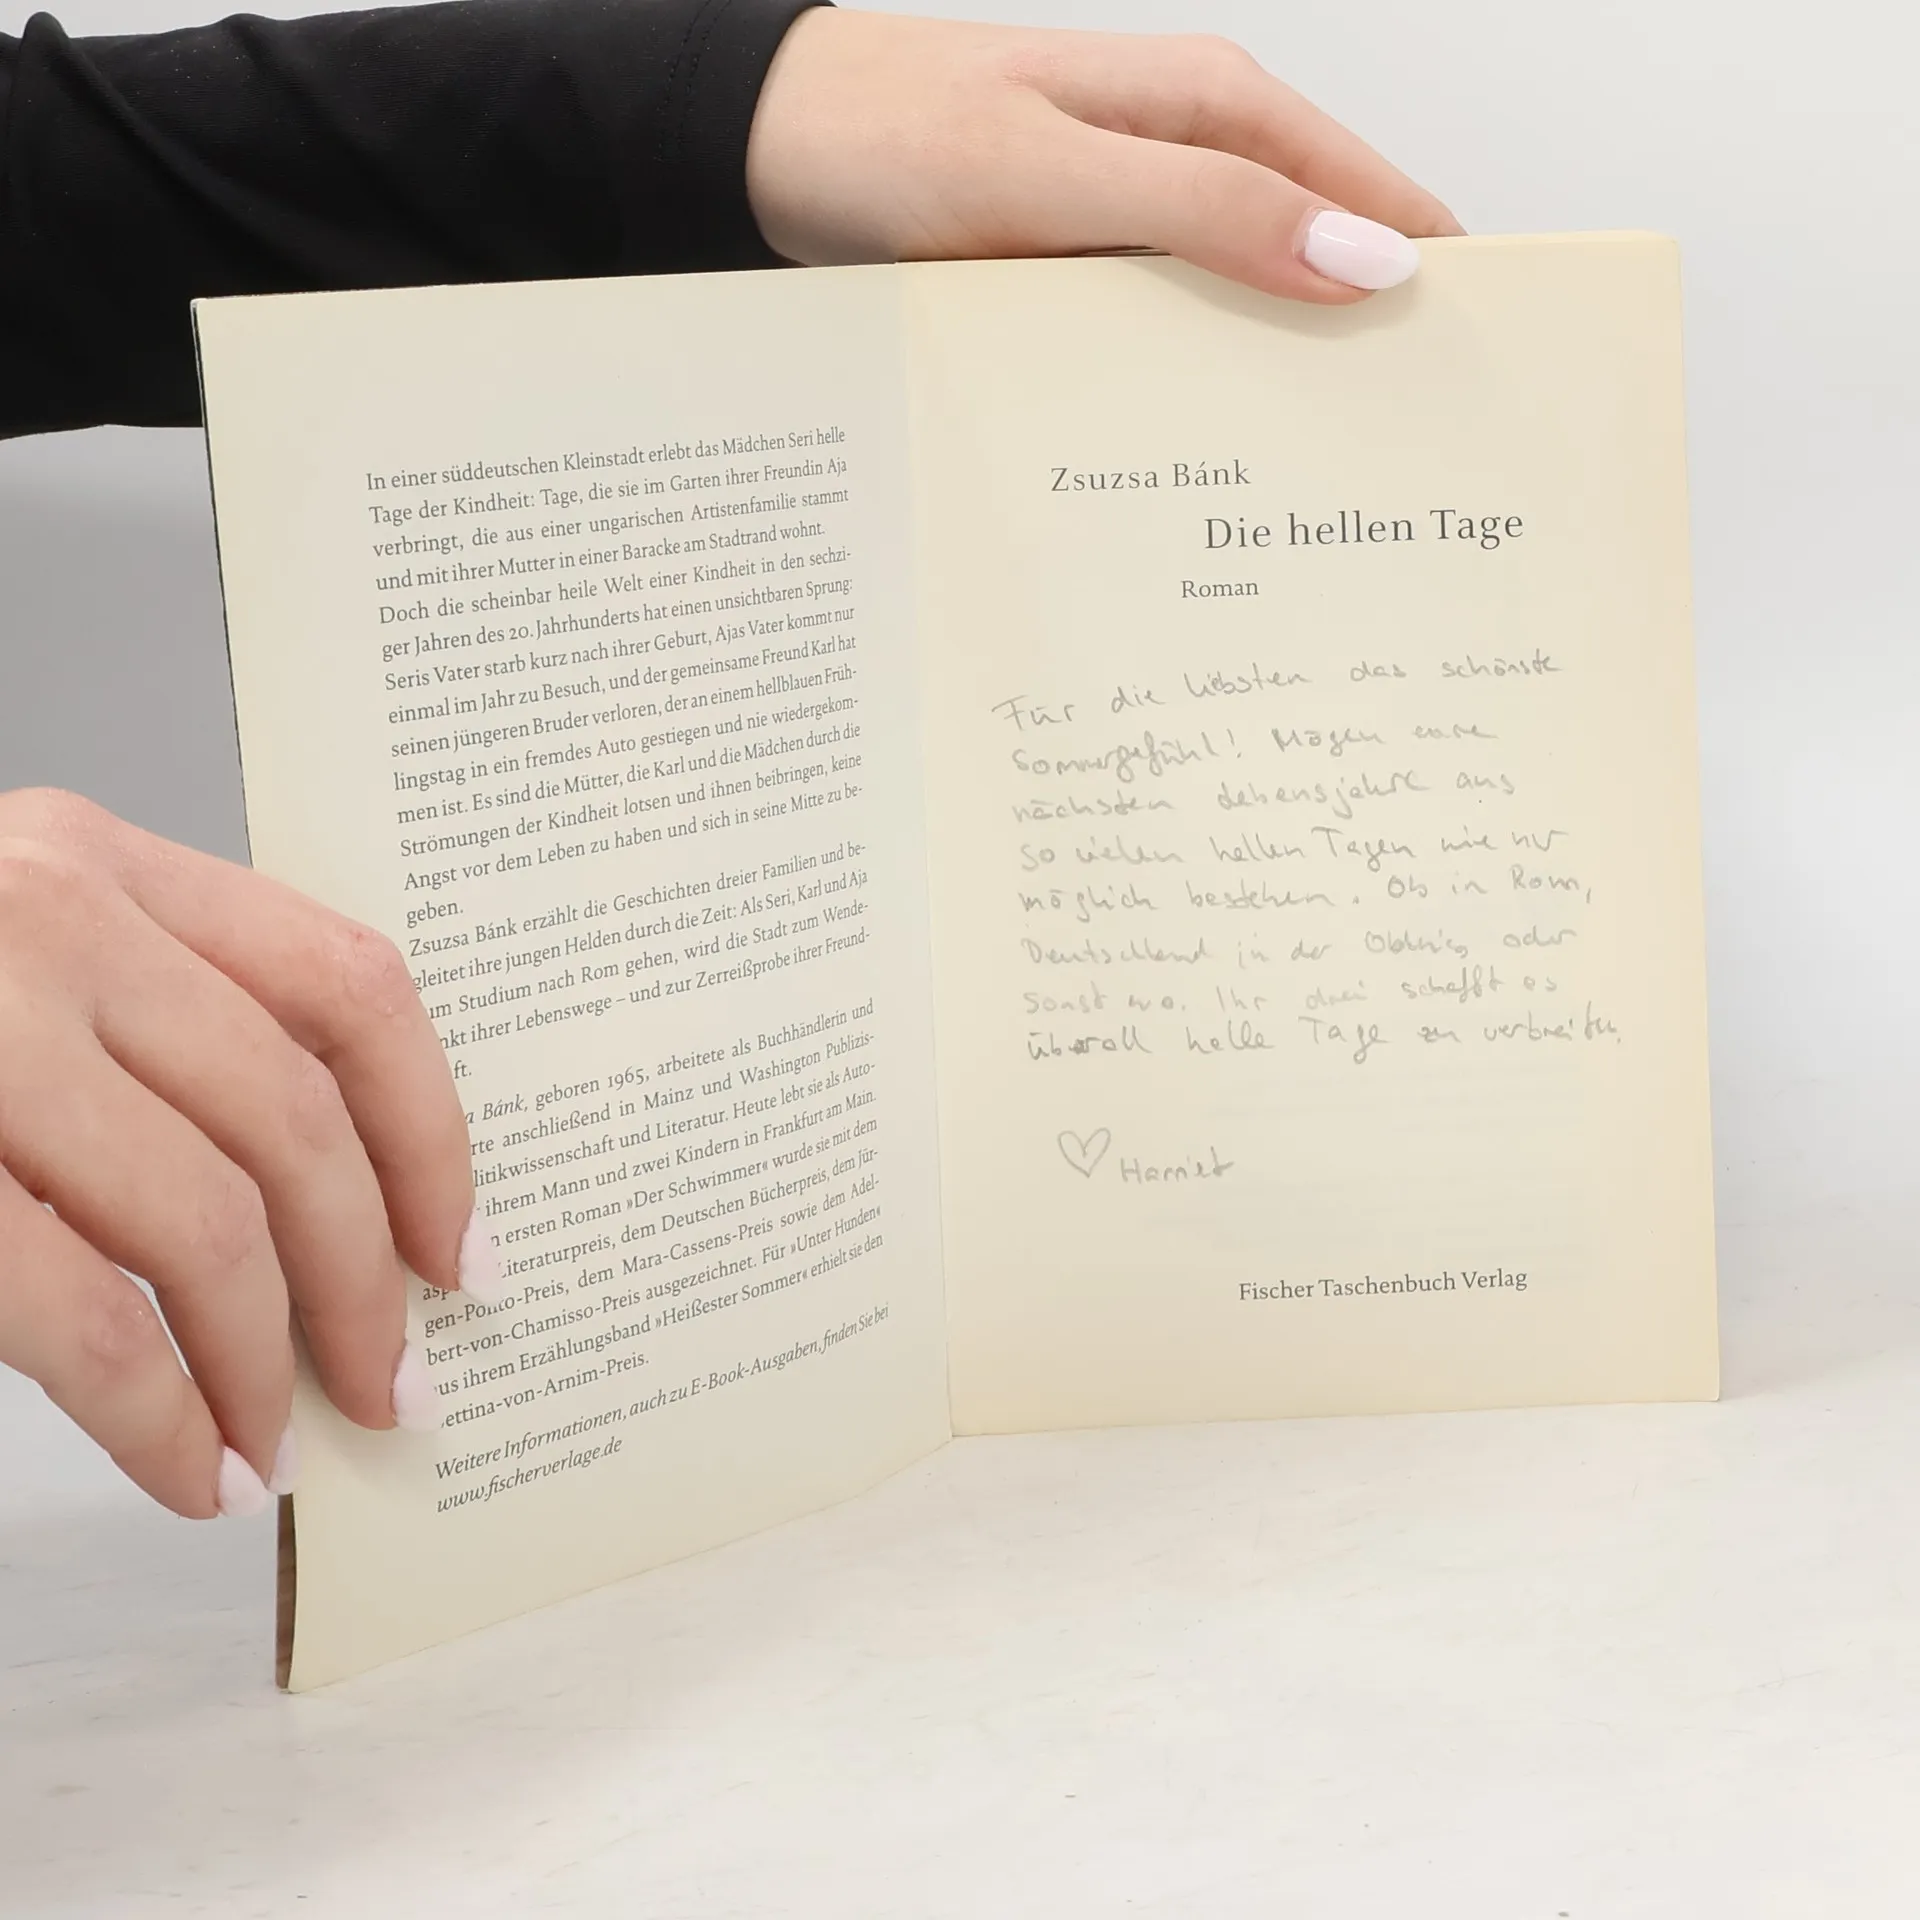 In einer süddeutschen Kleinstadt erlebt das Mädchen Seri helle
Tage der Kindheit: Tage, die sie im Garten ihrer Freundin Aja
verbringt, die aus einer ungarischen Artistenfamilie stammt
und mit ihrer Mutter in einer Baracke am Stadtrand wohnt.
Doch die scheinbar heile Welt einer Kindheit in den sechzi-
ger Jahren des 20. Jahrhunderts hat einen unsichtbaren Sprung:
Seris Vater starb kurz nach ihrer Geburt, Ajas Vater kommt nur
einmal im Jahr zu Besuch, und der gemeinsame Freund Karl hat
seinen jüngeren Bruder verloren, der an einem hellblauen Früh-
lingstag in ein fremdes Auto gestiegen und nie wiedergekom-
men ist. Es sind die Mütter, die Karl und die Mädchen durch die
Strömungen der Kindheit lotsen und ihnen beibringen, keine
Angst vor dem Leben zu haben und sich in seine Mitte zu be-
geben.
Zsuzsa Bánk erzählt die Geschichten dreier Familien und be-
gleitet ihre jungen Helden durch die Zeit: Als Seri, Karl und Aja
um Studium nach Rom gehen, wird die Stadt zum Wende-
nkt ihrer Lebenswege – und zur Zerreißprobe ihrer Freund-
ft.
a Bánk, geboren 1965, arbeitete als Buchhändlerin und
rte anschließend in Mainz und Washington Publizis-
litikwissenschaft und Literatur. Heute lebt sie als Auto-
ihrem Mann und zwei Kindern in Frankfurt am Main.
n ersten Roman »Der Schwimmer« wurde sie mit dem
asp Literaturpreis, dem Deutschen Bücherpreis, dem Jür-
gen-Ponto-Preis, dem Mara-Cassens-Preis sowie dem Adel-
bert-von-Chamisso-Preis ausgezeichnet. Für »Unter Hunden«
us ihrem Erzählungsband »Heißester Sommer« erhielt sie den
ettina-von-Arnim-Preis.
Weitere Informationen, auch zu E-Book-Ausgaben, finden Sie bei
www.fischerverlage.de
Zsuzsa Bánk
Die hellen Tage
Roman
Für die liebsten das schönste
Sommergefühl! Mögen eure
nächsten Lebensjahre aus
so vielen hellen Tagen wie nur
möglich bestehen. Ob in Rom,
Deutschland in der oder
sonst wo. Ihr drei schafft es
überall helle Tage zu verbreiten.
♡ Harriet
Fischer Taschenbuch Verlag